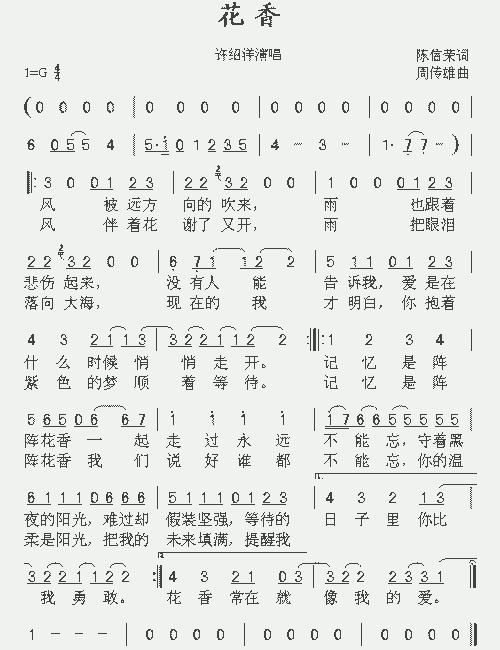 花香
许绍洋演唱 陈信荣词
1=G 4/4 周传雄曲
( 0 0 0 0 | 0 0 0 0 | 0 0 0 0 | 0 0 0 0
6 0 5 5 4 | 5 · 1 0 1 2 3 5 | 4 - 3 - | 1 · 7 7 - )
3 0 0 1 2 3 | 2 2 2 3 2 0 0 | 1 0 0 0 1 2 3
风 被 远方 向的 吹来， 雨 也跟着
风 伴 着花 谢了 又开， 雨 把眼泪
2 2 2 3 2 0 0 | 6 7 1 1 2 2 | 5 1 1 0 1 2 3
悲伤 起来， 没 有人 能 告 诉我， 爱 是在
落向 大海， 现 在的 我 才 明白， 你 抱着
4 3 2 1 1 3 | 3 2 2 1 1 2 2 :||: 1 2 3 4
什 么 时候 悄 悄 走 开。 记 忆 是 阵
紫 色 的梦 顺 着 等 待。 记 忆 是 阵
5 6 5 0 6 6 7 | 1 1 1 1 | 1 7 6 6 5 5 5 5 5
阵花香 一 起 走 过 永 远 不 能 忘，守着黑
阵花香 我 们 说 好 谁 都 不 能 忘，你的温
1.
6 1 1 1 0 6 6 6 | 5 1 1 1 0 1 2 3 | 4 3 2 1 3
夜的阳光， 难过却 假装坚强， 等待的 日 子 里 你比
柔是阳光， 把我的 未来填满， 提醒我
2.
3 2 2 1 1 2 2 :| 4 3 2 1 0 3 | 3 2 2 2 3 3 1
我 勇 敢。 花 香 常在 就 像 我 的 爱。
1 - - - | 0 0 0 0 | 0 0 0 0 | 0 0 0 0